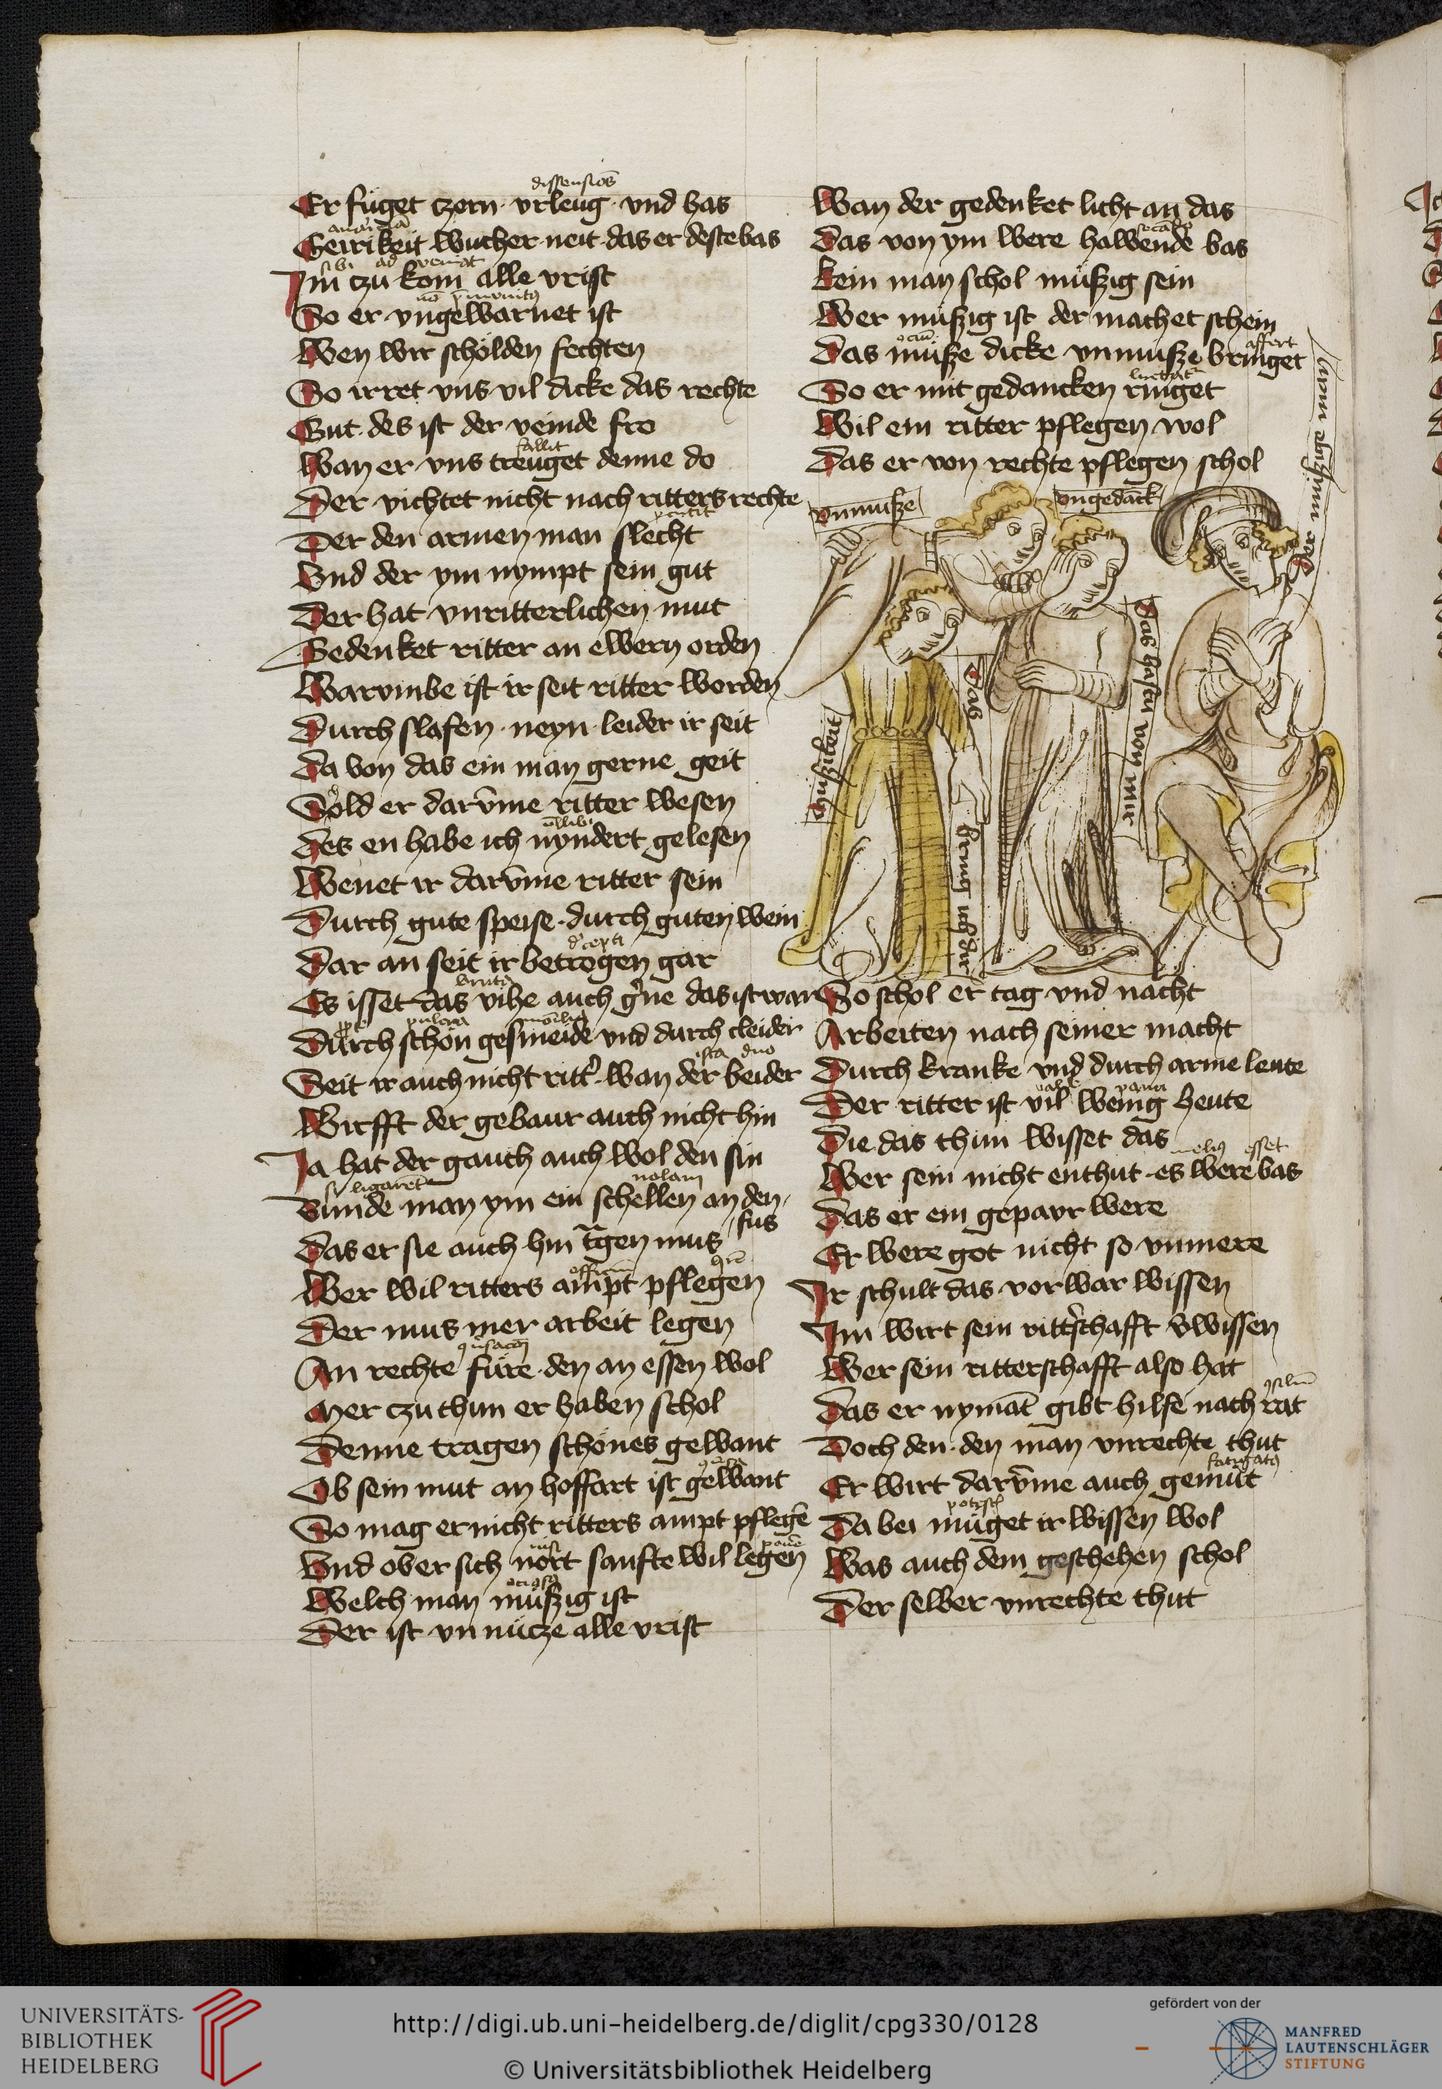 dissensiōs
Er füget czorn · vrleug · vnd has
auaricia
Geirikeit wucher · neit · das er deste bas
sibi ad veniat
Im czu kom alle vrist
nō p̄munitꝰ
So er vngewarnet ist
Wen wir scholden fechten
So irret vns vil dicke das rechte
Gut · des ist der veinde fro
fallit
Wan er vns treuget denne do
Der vichtet nicht nach ritters rechte
Der den armen man slecht
Vnd der ym nympt sein gut
Der hat vnritterlichen mut
Gedenket ritter an ewern orden
Warvmbe ist ir seit ritter worden
Durch slafen · neyn · leider ir seit
Da von das ein man gerne geit
Sold er darv̄me ritter wesen
Des en habe ich nyndert gelesen
Wenet ir darv̄me ritter sein
Durch gute speise · durch guten wein
d'cepti
Dar an seit ir betrogen gar
bruta
Es isset das vihe auch g'ne das ist war
pulcra
Durch schön gesmeide vnd durch cleider
ista duo
Seit ir auch nicht ritt' · wan der beider
Wirfft der gebaur auch nicht hin
Ja hat der gauch auch wol den sin
si ligaret nolam
Bunde man ym ein schellen an den
fus
Das er sie auch hin tragen mus
officium
Wer wil ritters ampt pflegen
Der mus mer arbeit legen
An rechte füre · den an essen wol
Mer czu thun er haben schol
Denne tragen schönes gewant
Ob sein mut an hoffart ist gewant
So mag er nicht ritters ampt pflegē
Vnd ober sich nort sanfte wil legen
ociosꝰ
Welch man müßzig ist
Der ist vnnücze alle vrist
Wan der gedenket licht an das
Das von ym were halwende bas
Kein man schol müßzig sein
Wer müßzig ist der machet schein
ociū affert
Das müße dicke vnmuße bringet
luctat'
So er mit gedancken ringet
Wil ein ritter pflegen wol
Das er von rechte pflegen schol
vnmusze
vngedāck
mußzikeit
Das
bring ich dir
Das hastu von mir
Der müßzig man
So schol er tag vnd nacht
Arbeiten nach seiner macht
Durch kranke vnd durch arme leute
valde pauci
Der ritter ist vil wenig heute
Die das thun wisset das
meliꝰ esset
Wer sein nicht enthut · es were bas
Das er ein gepavr were
Er were got nicht so vnmere
Ir schult das vorwar wissen
Im wirt sein ritt'schafft v'wissen
Wer sein ritterschafft also hat
ꝯsiliū
Das er nymāt gibt hilfe nach rat
Doch den · den man vnrechte thut
fatigatꝰ
Er wirt darv̄me auch gemut
potestis
Da bei müget ir wissen wol
Was auch dem geschehen schol
Der selber vnrechte thut
UNIVERSITÄTS-
BIBLIOTHEK
HEIDELBERG
http://digi.ub.uni-heidelberg.de/diglit/cpg330/0128
© Universitätsbibliothek Heidelberg
gefördert von der
MANFRED
LAUTENSCHLÄGER
STIFTUNG